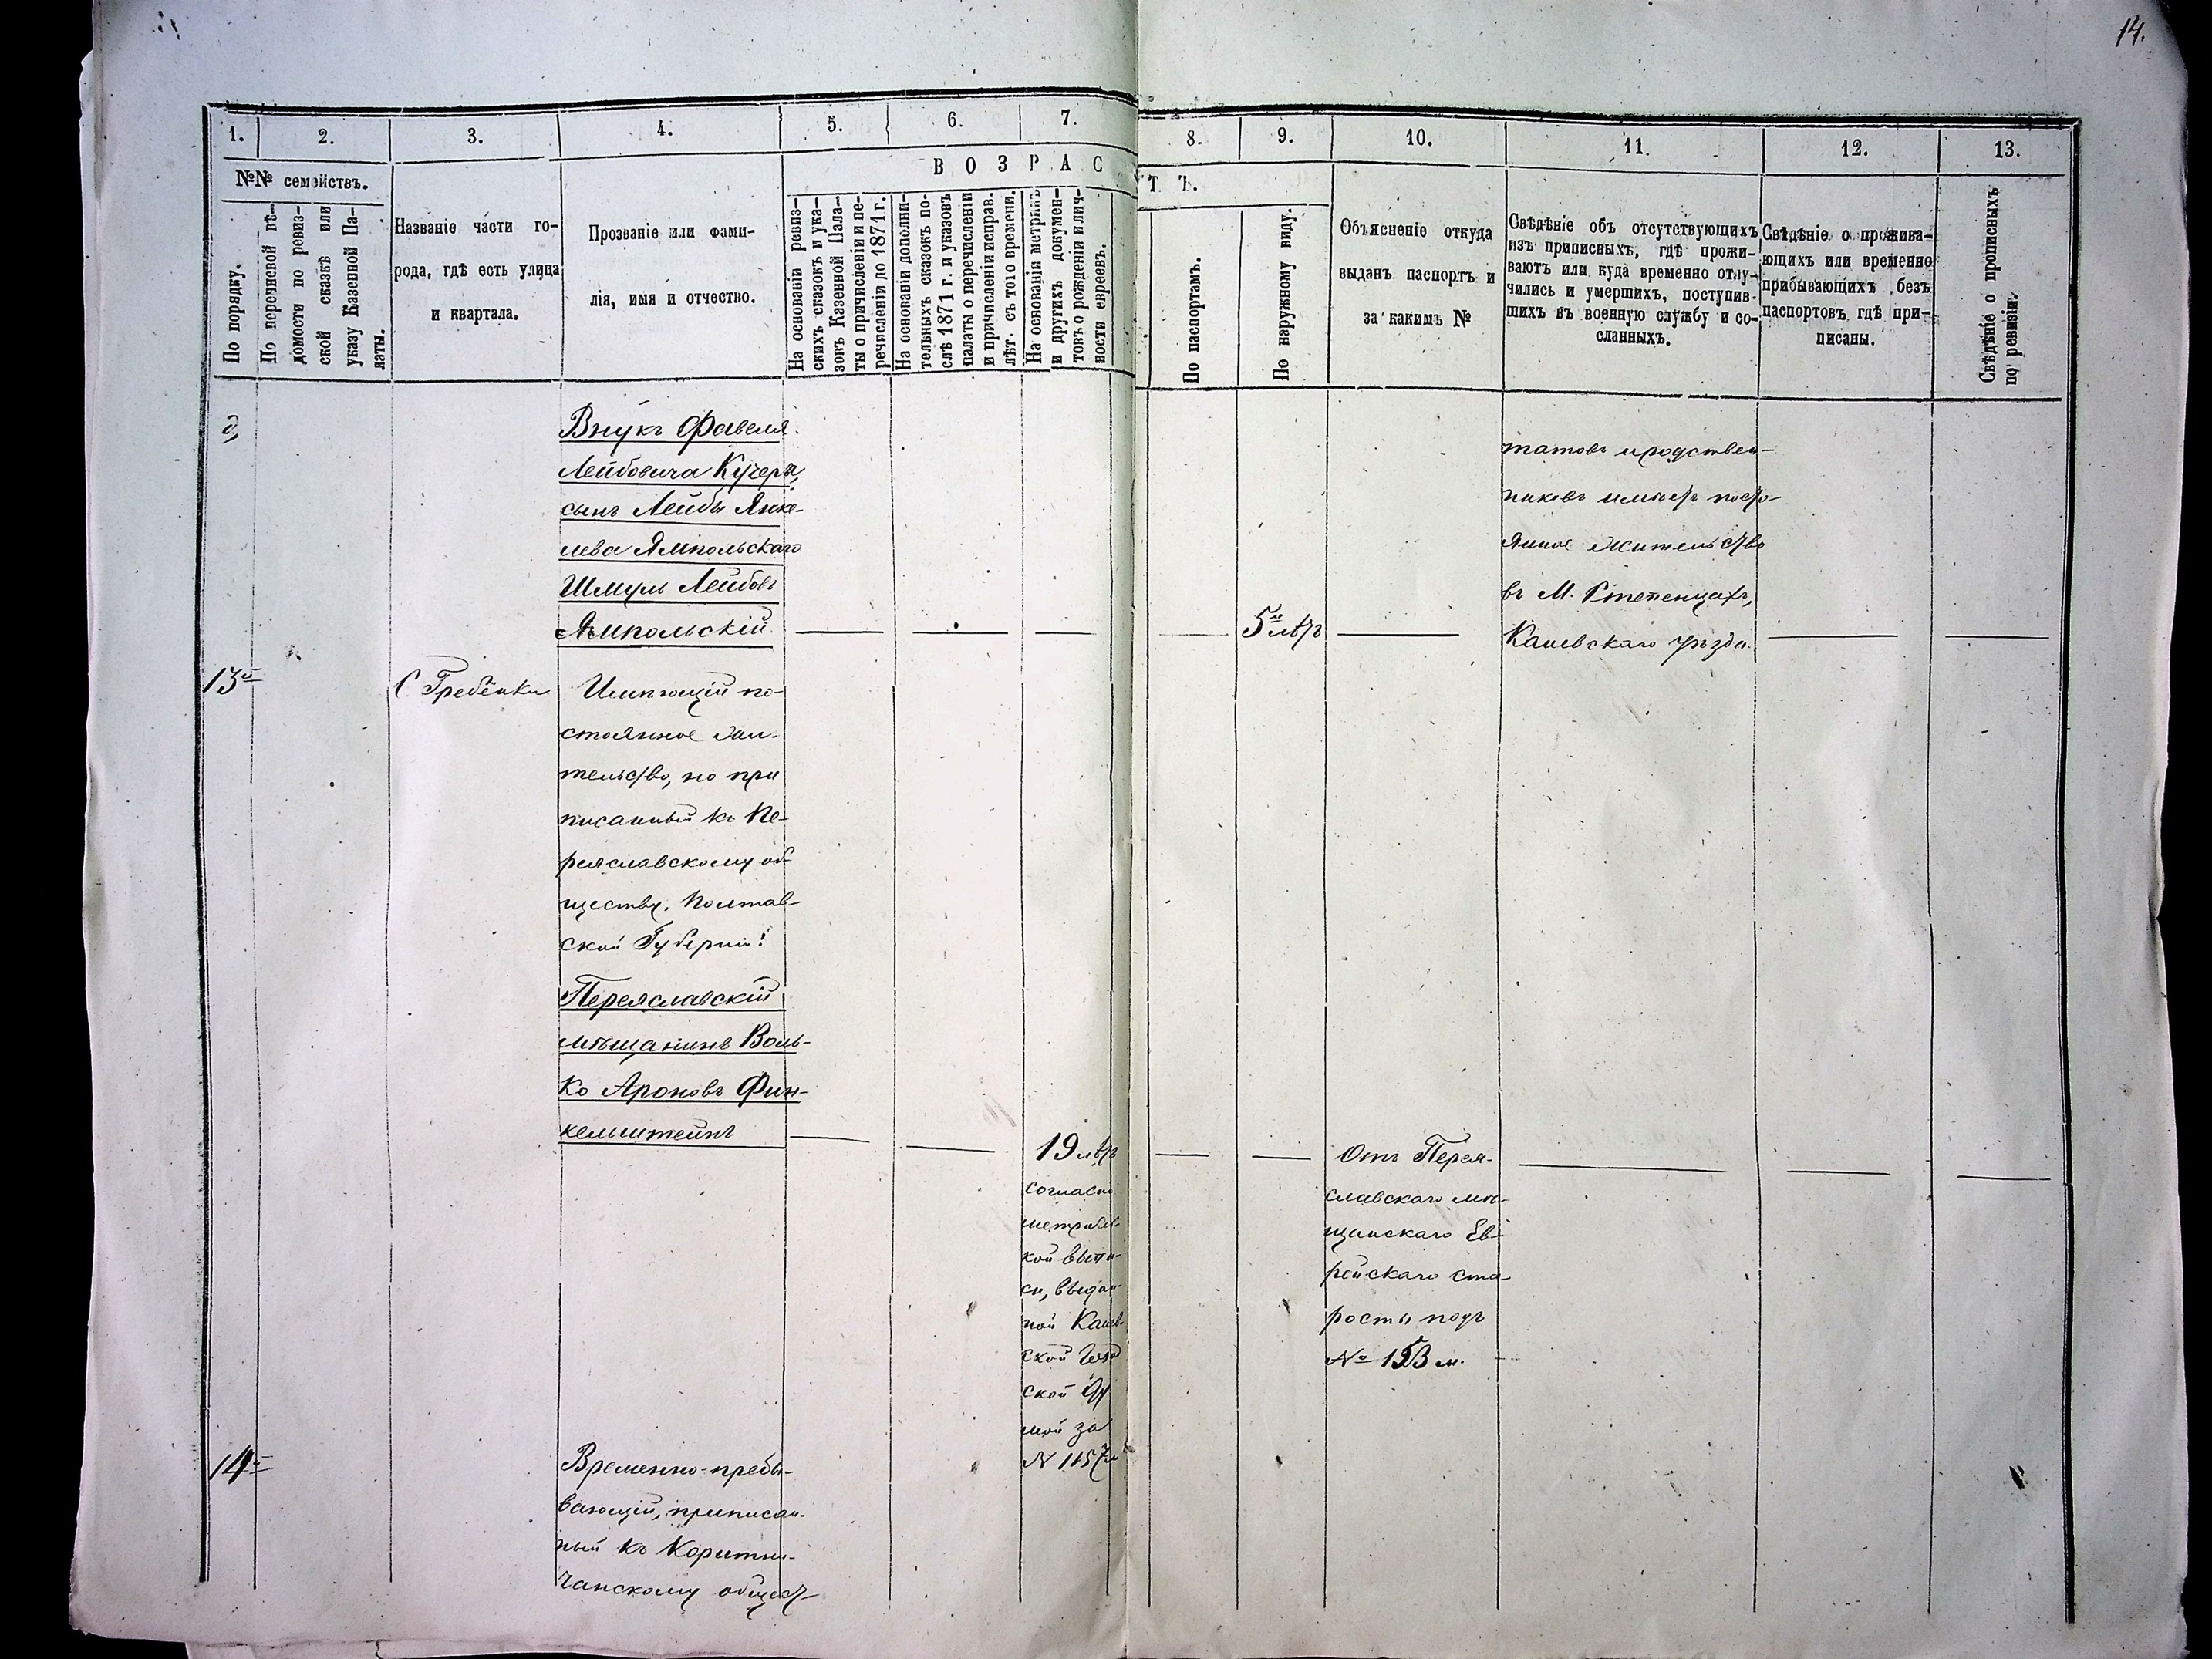 14.
1.
2.
3.
4.
5.
6.
7.
8.
9.
10.
11.
12.
13.
№№ семействъ.
По порядку.
По перечневой вѣ-
домости по ревиз-
ской сказкѣ или
указу Казенной Па-
латы.
Названіе части го-
рода, гдѣ есть улица
и квартала.
Прозваніе или фами-
лія, имя и отчество.
ВОЗРАСТЪ.
На основаніи ревиз-
скихъ сказокъ и ука-
зовъ Казенной Пала-
ты о причисленіи и пе-
речисленіи до 1871 г.
На основаніи дополни-
тельныхъ сказокъ по-
слѣ 1871 г. и указовъ
палаты о перечисленіи
и причисленіи исправ.
лѣт. съ того времени.
На основаніи метрикъ
и другихъ докумен-
товъ о рожденіи и лич-
ности евреевъ.
По паспортамъ.
По наружному виду.
Объясненіе откуда
выданъ паспортъ и
за какимъ №
Свѣдѣніе объ отсутствующихъ
изъ приписныхъ, гдѣ прожи-
ваютъ или куда временно отлу-
чились и умершихъ, поступив-
шихъ въ военную службу и со-
сланныхъ.
Свѣдѣніе о прожива-
ющихъ или временно
прибывающихъ безъ
паспортовъ, гдѣ при-
писаны.
Свѣдѣніе о прописныхъ
по ревизіи.
Внукъ Фавеля
Лейбовича Кучеры,
сынъ Лейбы Янке-
лева Ямпольскаго
Шмуль Лейбовъ
Ямпольскій
5и лѣтъ
татовъ и родствен-
никовъ имѣетъ посто-
янное жительство
въ М. Степенцахъ,
Каневскаго уѣзда.
13й
С Гребёнки
Имѣющій по-
стоянное жи-
тельство, но при
писанный къ Пе-
реяславскому об-
ществу, Полтав-
ской Губерніи:
Переяславскій
мѣщанинъ Воль-
ко Ароновъ Фин-
кельштейнъ
19 лѣтъ
согласно
метриче-
кой выпи-
си, выдан-
ной Канев-
ской
ской
мой за
№ 1157м
Отъ Перея-
славскаго мѣ-
щанскаго Ев-
рейскаго ста-
росты подъ
№ 153 м.
14й
Временно-пребы-
вающій, приписан-
ный къ Коритни-
чанскому общест-